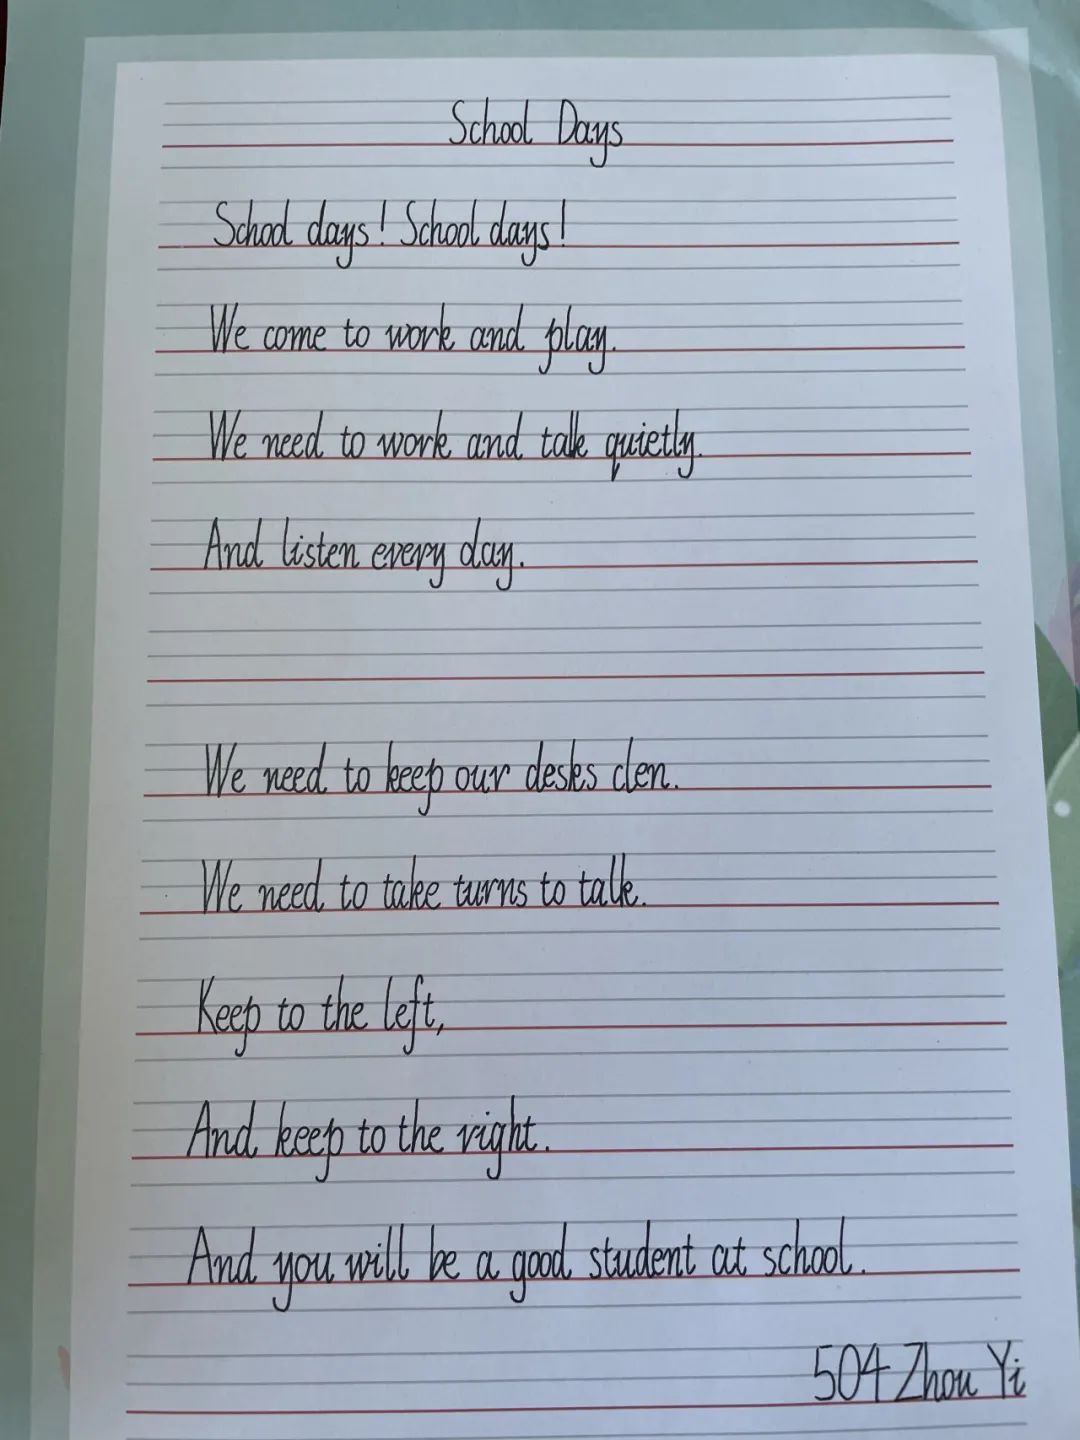 School Days
School days! School days!
We come to work and play.
We need to work and talk quietly.
And listen every day.
We need to keep our desks clen.
We need to take turns to talk.
Keep to the left,
And keep to the right.
And you will be a good student at school.
504 Zhou Yi